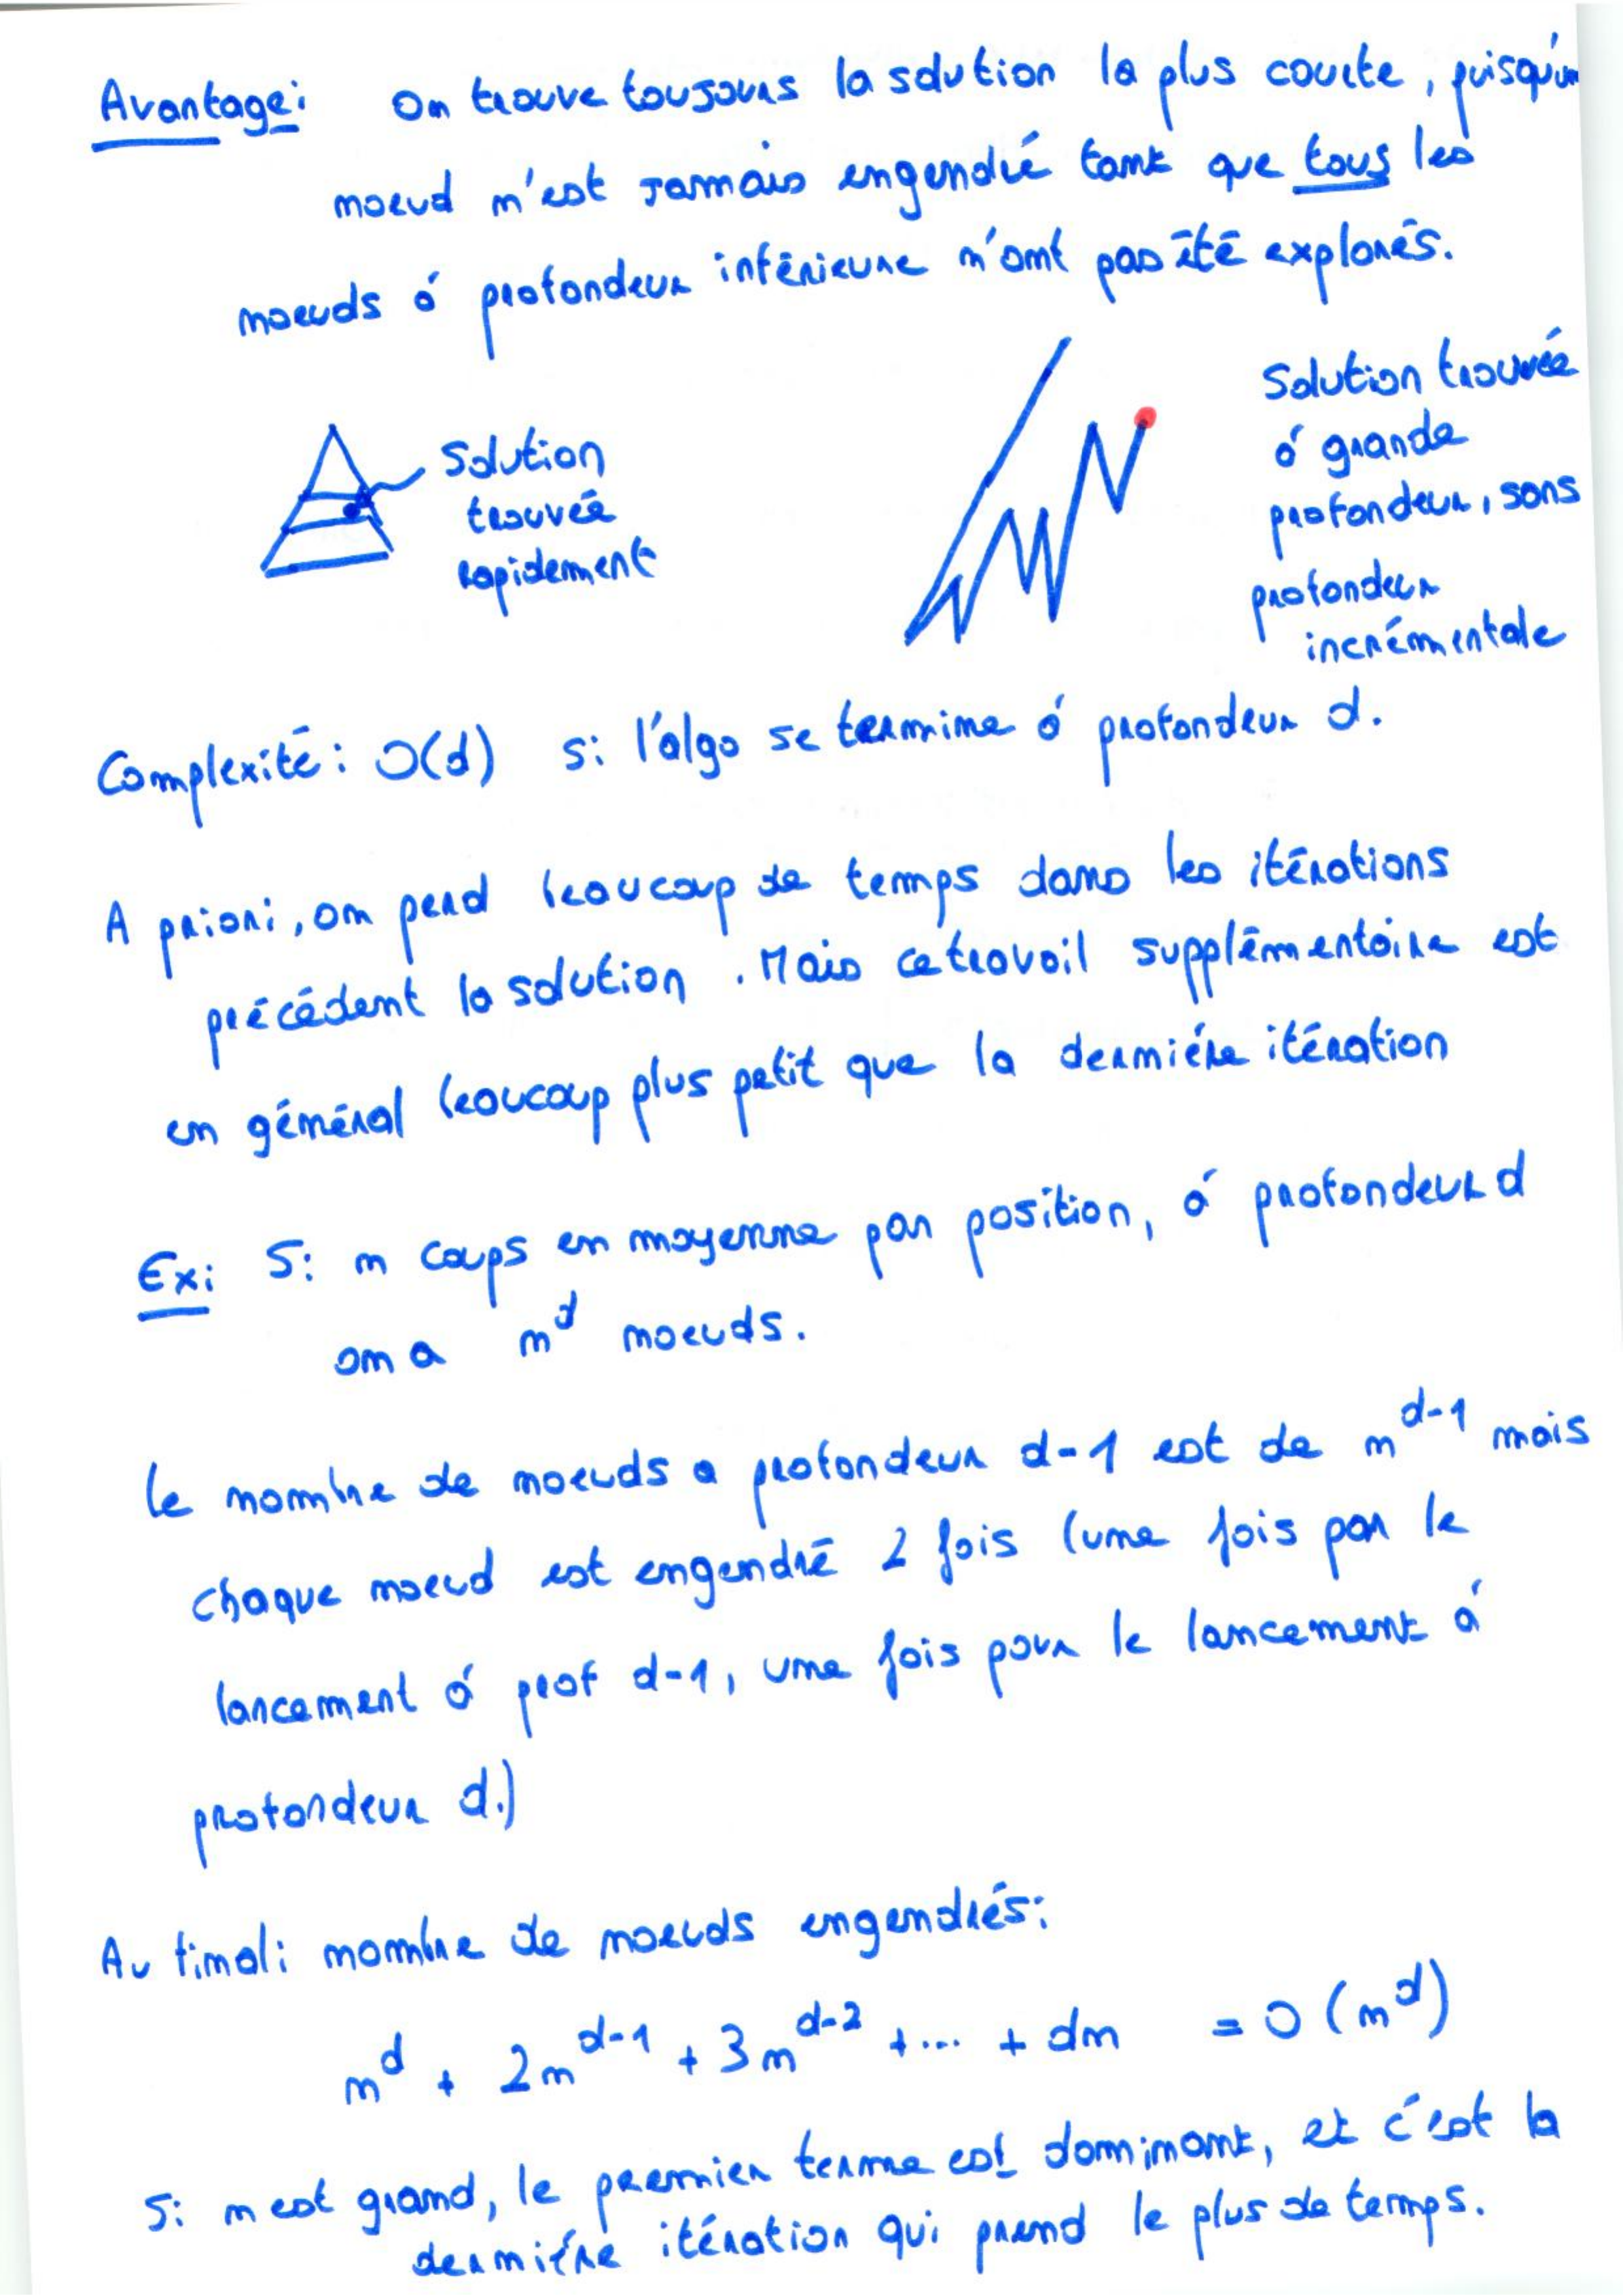 Avantage: On trouve toujours la solution la plus courte, puisqu'un
noeud n'est jamais engendré tant que tous les
noeuds à profondeur inférieure n'ont pas été explorés.
Solution
trouvée
rapidement
Solution trouvée
à grande
profondeur, sans
profondeur
incrémentale
Complexité: O(d) si l'algo se termine à profondeur d.
A priori, on perd beaucoup de temps dans les itérations
précédent la solution. Mais ce travail supplémentaire est
en général beaucoup plus petit que la dernière itération
Ex: Si n coups en moyenne par position, à profondeur d
on a n^d noeuds.
Le nombre de noeuds a profondeur d-1 est de n^{d-1} mais
chaque noeud est engendré 2 fois (une fois par le
lancement à prof d-1, une fois pour le lancement à
profondeur d.)
Au final: nombre de noeuds engendrés:
n^d + 2n^{d-1} + 3n^{d-2} + ... + dn = O(n^d)
Si n est grand, le premier terme est dominant, et c'est la
dernière itération qui prend le plus de temps.